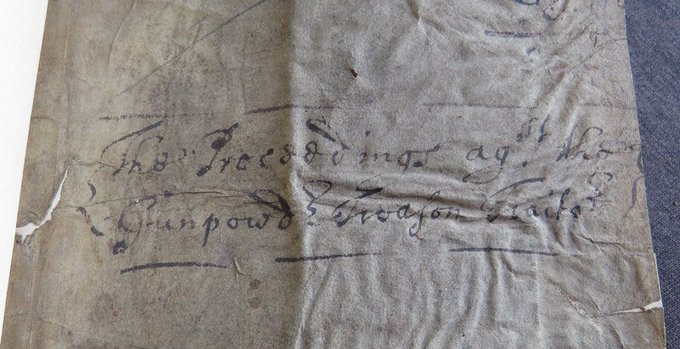 The Proceedings agst. the
Gunpowdr Treason Traitors